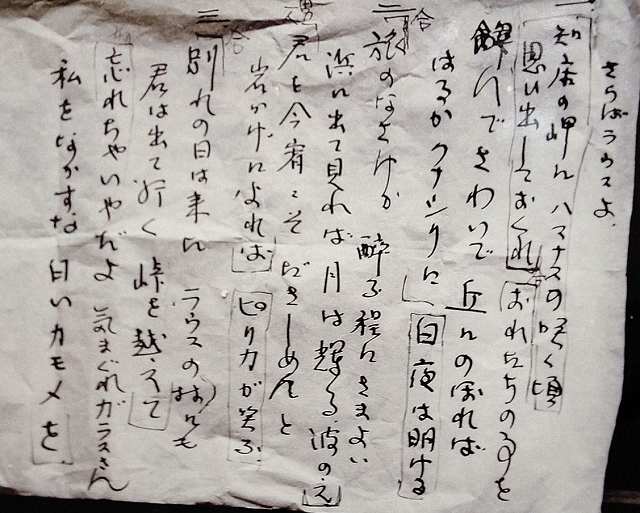 さらばラウスよ.
一 知床の岬に ハマナスの咲く頃
思い出しておくれ おれたちの事を
飲んでさわいで 丘にのぼれば
はるかクナシリに 白夜は明ける
合
二 旅のなさけか 酔う程にさまよい
浜に出て見れば 月は輝る波の上
男
君を今宵こそ だきしめんと
岩かげによれば ピリカが笑う
合
三 別れの日は来た ラウスの村にも
君は出て行く 峠を越えて
忘れちゃいやだよ 気まぐれガラスさん
私をなかすな 白いカモメを